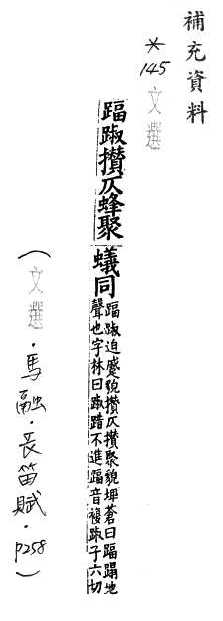 補充資料
*145 文選
踾踧攢仄蜂聚蟻同
踾踧迫蹙貌攢仄攢聚貌埤蒼曰踾蹋地
聲也字林曰踧踖不進踾音複踧子六切
(文選.馬融.長笛賦.P258)